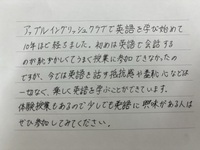 アップルイングリッシュクラブで英語を学び始めて
10年ほど経ちました。初めは英語で会話する
のが恥ずかしくてうまく授業に参加できなかったの
ですが、今では英語を話す抵抗感や羞恥心などは
一切なく、楽しく英語を学ぶことができています。
体験授業もあるので少しでも英語に興味がある人は
ぜひ参加してみてください。